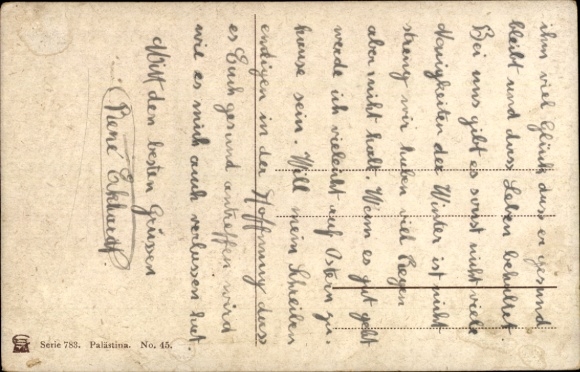 ihm viel Glück dass er gesund
bleibt und das Leben behaltet.
Bei uns gibt es sonst nicht viele
Neuigkeiten der Winter ist nicht
streng wir haben viel Regen
aber nicht kalt. Wenn es gut geht
werde ich vieleicht auf Ostern zu-
hause sein. Will mein Schreiben
endigen in der Hoffnung dass
es Euch gesund antreffen wird
wie es mich auch verlassen hat.
Mitt den besten Grüssen
René Eckhardt
Serie 783. Palästina. No. 45.